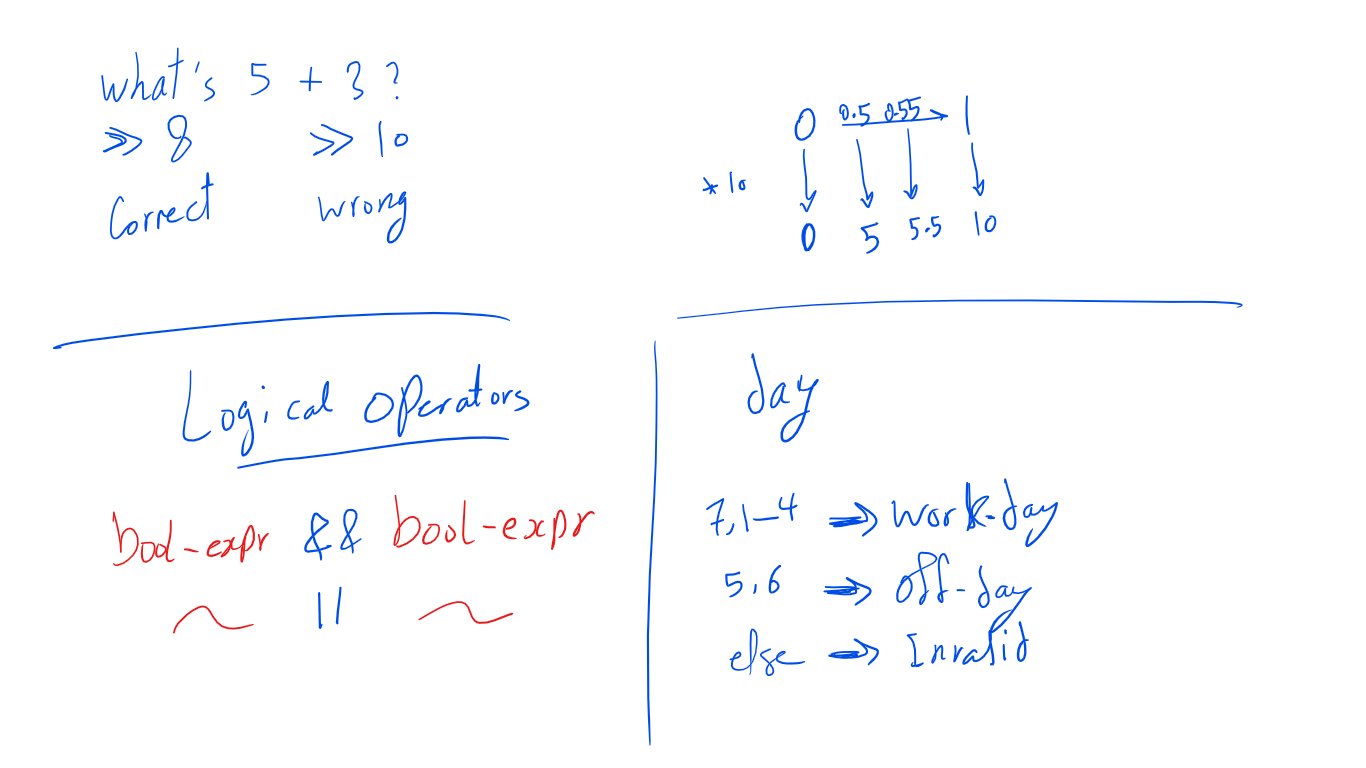 what's 5 + 3 ?
>> 8 >> 10
Correct wrong
0 0.5 0.55 1
* 10
0 5 5.5 10
Logical operators
bool-expr && bool-expr
||
day
7,1-4 => work-day
5,6 => off-day
else => Invalid